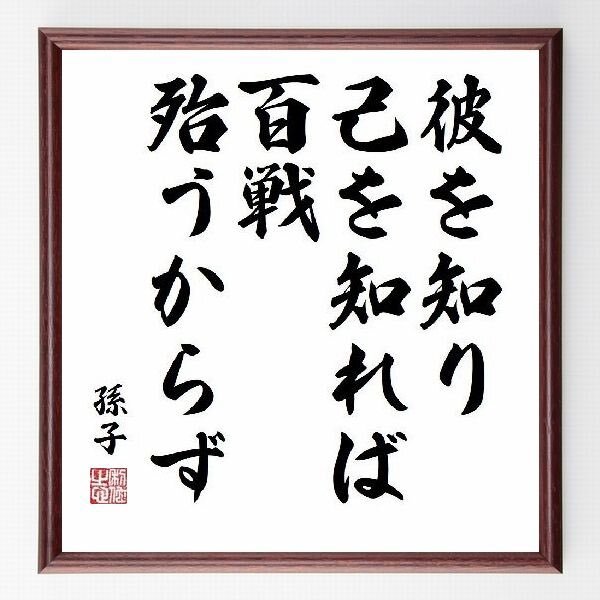 彼を知り
己を知れば
百戦
殆うからず
孫子